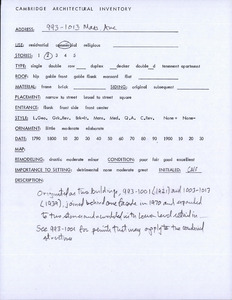 CAMBRIDGE ARCHITECTURAL INVENTORY
ADDRESS: 993-1013 Mass. Ave
USE: residential commercial religious
STORIES: 1 2 3 4 5
TYPE: single double row duplex decker double d tenement apartment
ROOF: hip gable front gable flank mansard flat
MATERIAL: frame brick SIDING: original subsequent
PLACEMENT: narrow to street broad to street square
ENTRANCE: flank front side front center
STYLE:
ORNAMENT: little moderate elaborate
DATE: 1790 1800 10 20 30 40 50 60 70 80 90 1900 10 20 30
MAP:
REMODELING: drastic moderate minor CONDITION: poor fair good excellent
IMPORTANCE TO SETTING: detrimental none moderate great INITIALED: CMS
DESCRIPTION:
Originated as two buildings, 993-1001 (1921) and 1003-1017
(1939), joined behind one facade in 1970 and expanded
to two stories and with lower level retail in
See 993-1001 for permits that may apply to the combined
structure